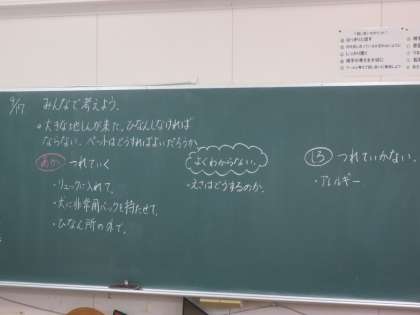 9/17 みんなで考えよう。
◎大きな地しんが来た。ひなんしなければ
ならない。ペットはどうすればよいだろうか。
あか つれていく
・リュックに入れて。
・犬に非常用バックを持たせて。
・ひなん所の外で。
よくわからない。
・えさはどうするのか。
しろ つれていかない。
・アレルギー